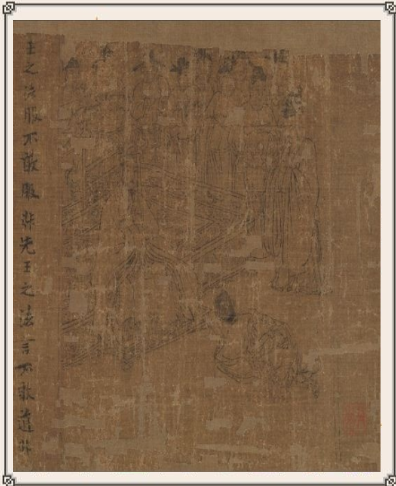 王之法服不敢服非先王之法言不敢道非